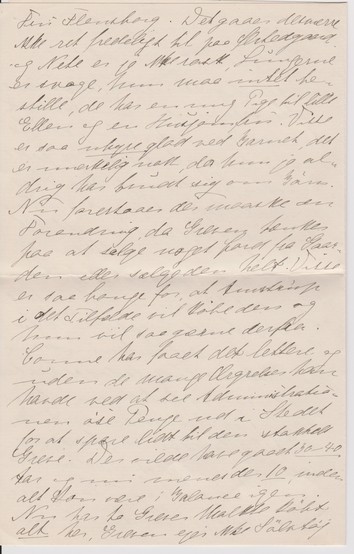 Flensborg. Det gaaer desværre
ikke ret fredeligt til paa
og Nete er jo ikke rask, Lungerne
er svage, hun maa intet be-
stille, de har en ung Pige til Lille
Ellen og en Husjomfru. Visse
er saa uhyre glad ved Barnet, det
er mærkeligt nok, da hun jo al-
drig har brudt sig om Børn.
Nu forestaaer der maaske en
Forandring, da Greven tænker
paa at sælge noget Jord fra Gaar-
den eller sælge den helt. Visse
er saa bange for, at
i det Tilfælde vil købe den og
hun vil saa gerne derfra.
har faaet det lettere, og
uden de mange Ærgrelser han
havde ved at see Administratio-
nen øse Penge ud i Stedet
for at spare lidt til den stakkels
Greve. Der vilde have gaaet 30-40
Aar og nu menes der 10, inden
alt kan være i Balance igen.
Nu har to Grever Moltke købt
alt her, Greven ejer ikke Sølvtøj